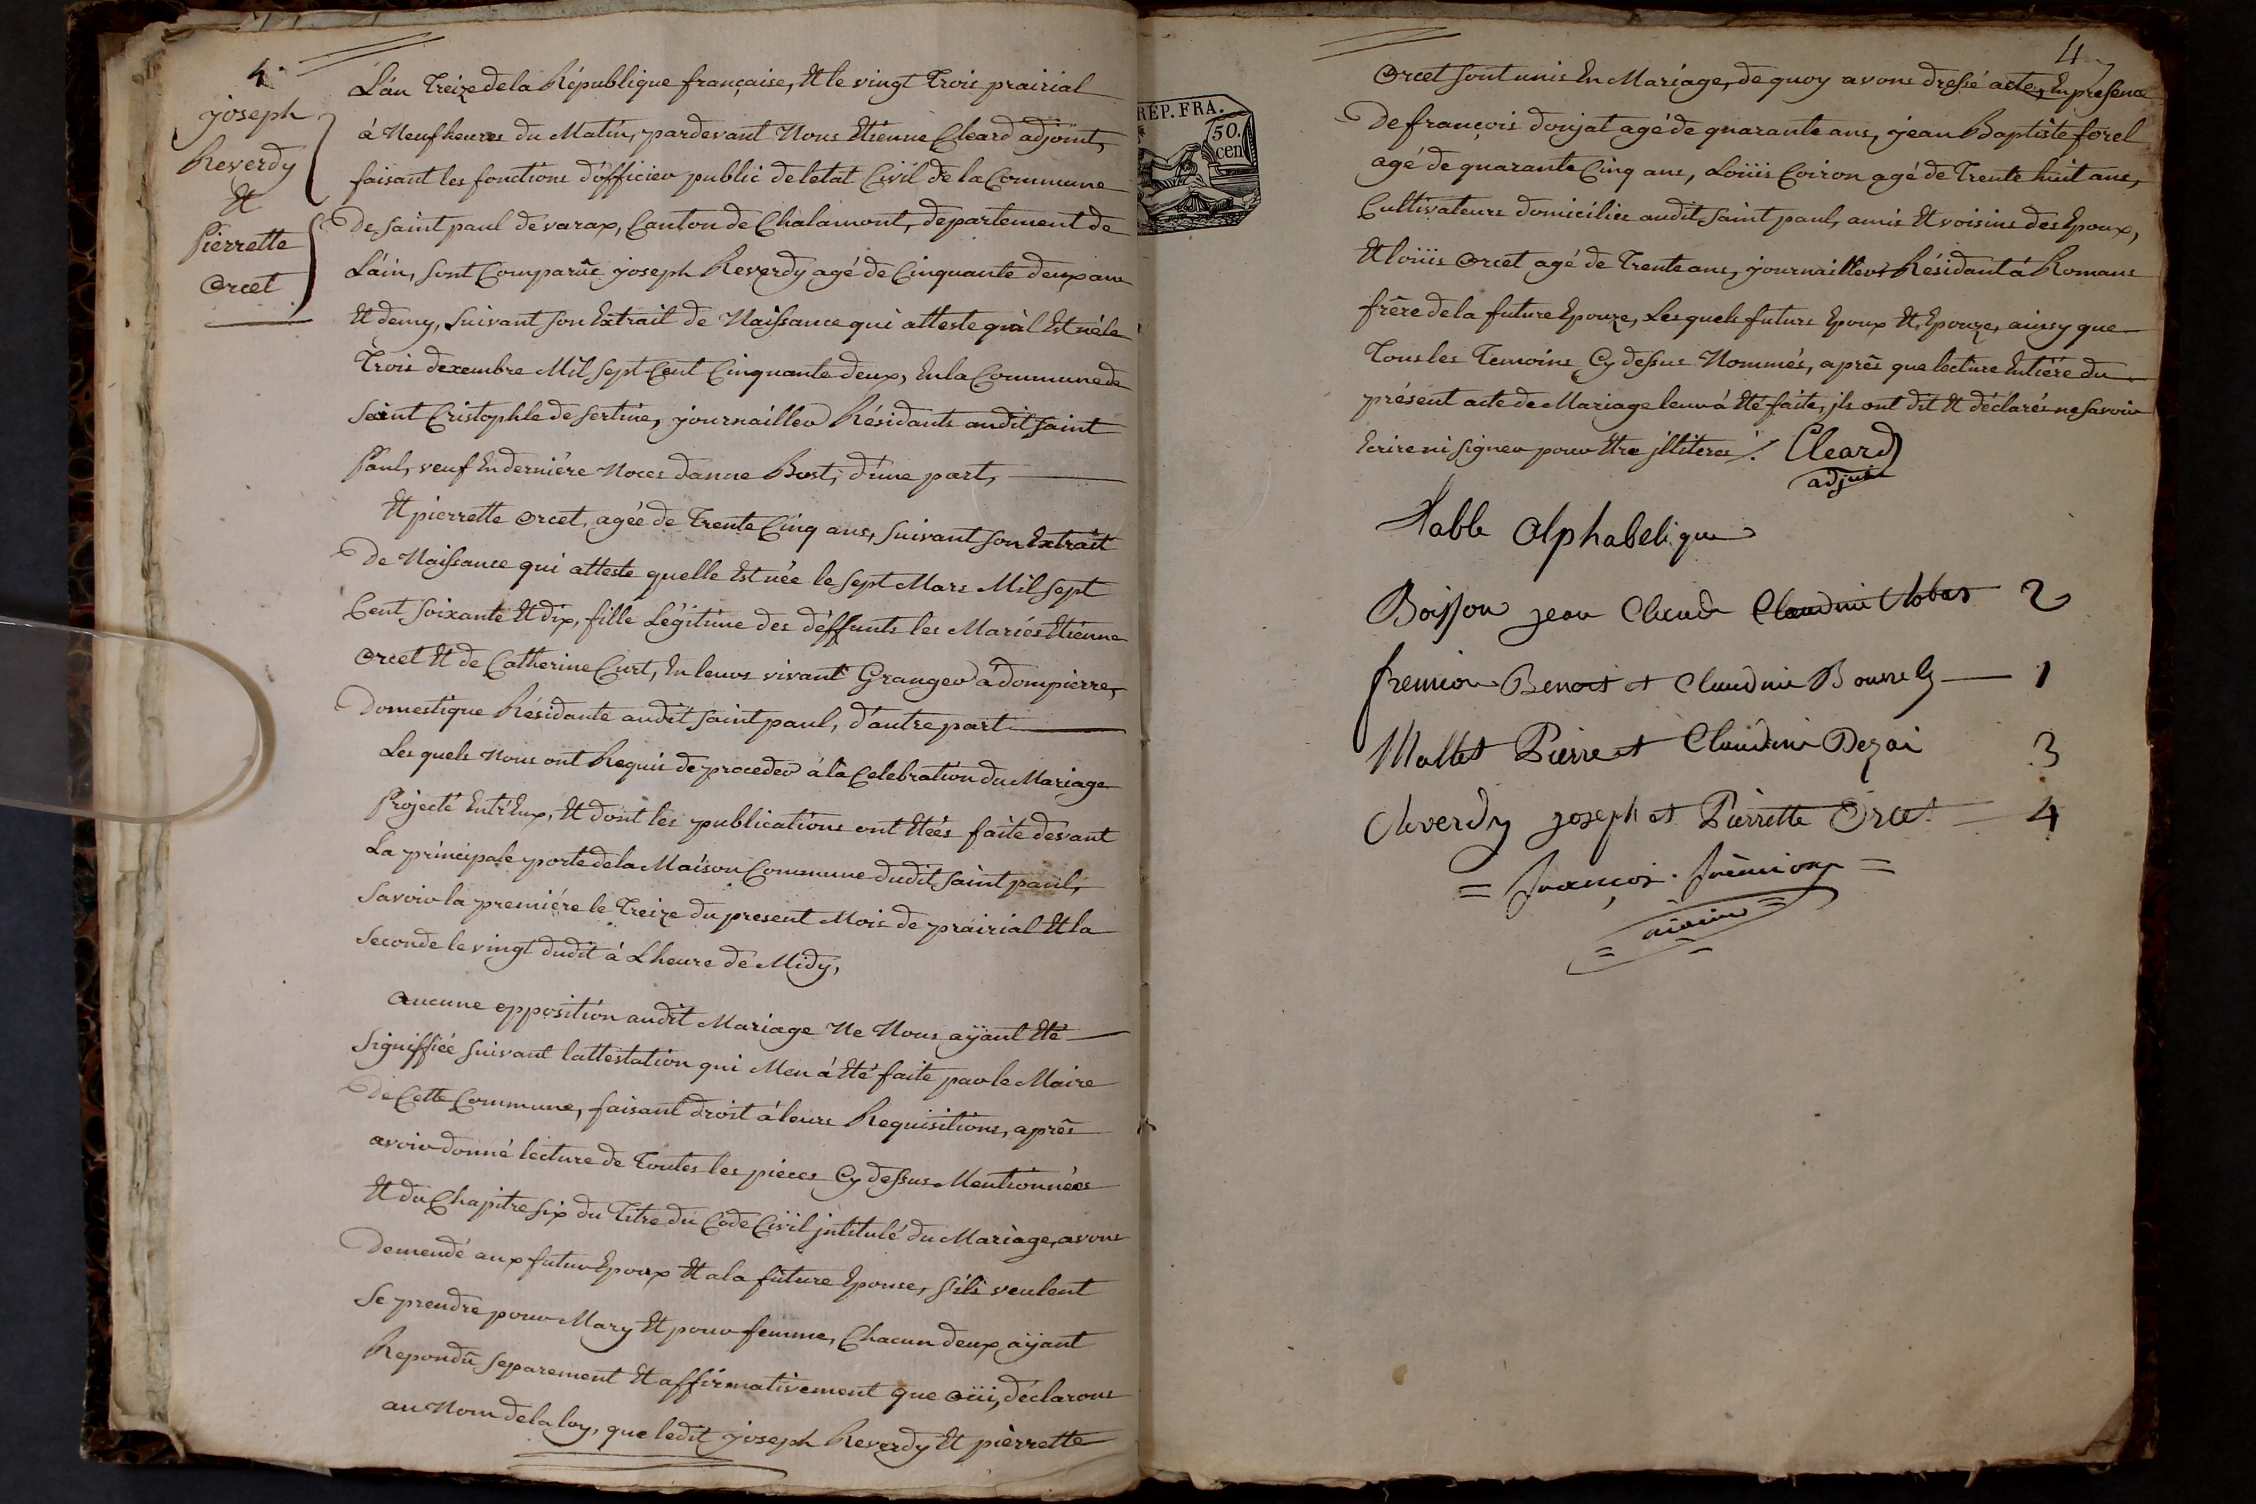 4.
joseph
Reverdy
Et
Pierrette
orcet
L'an Treize de la République française, Et le vingt Trois prairial
à Neuf heures du Matin, pardevant Nous Etienne Cleard adjoint,
faisant les fonctions d'officier public de letat Civil de la Commune
De saint paul de varax, Canton de Chalamont, departement de
L'ain, sont Comparûs joseph Reverdy agé de Cinquante deux ans
Et demy, suivant son Extrait de Naissance qui atteste qu'il Est né le
Trois dexembre Mil sept Cent Cinquante deux, En la Commune de
saint Cristophle de sertine, journailler Résidants audit saint
Paul, veuf En derniére Noces danne Bost, d'une part,
Et pierrette orcet, agée de Trente Cinq ans, suivant son Extrait
De Naissance qui atteste quelle Est née le sept Mars Mil sept
Cent soixante Et dix, fille Légitime des déffunts les Mariés Etienne
orcet Et de Catherine Curt, En leurs vivant Granger à dompierre,
Domestique Résidante audit saint paul, d'autre part
Les quels nous ont Requis de proceder à la Celebration du Mariage
Projecté Entr'Eux, Et dont les publications ont Etées faite devant
La principale porte de la Maison Commune dudit saint paul,
savoir la premiére le Treize du present Mois de prairial Et la
seconde le vingt dudit à Lheure de Midy,
aucune opposition audit Mariage Ne Nous aÿant Eté
signiffiée suivant lattestation qui Men à Eté faite par le Maire
De Cette Commune, faisant droit à leurs Requisitions, aprês
avoir donné lecture de Toutes les pièces Cy dessus Mentionnées
Et du Chapitre six du Titre du Code Civil jntitulé du Mariage, avons
Demendé aux futur Epoux Et a la future Epouse, s'ils veulent
se prendre pour Mary Et pour femme, Chacun deux aÿant
Repondû separement Et affirmativement que oüi, déclarons
au Nom de la loy, que ledit joseph Reverdy Et pierrette
REP. FRA.
50.
cen
4
orcet sont unis En Mariage, de quoy avons dressé acte, En presence
De françois donjat agé de quarante ans, jean Baptiste forel
agé de quarante Cinq ans, Loüis Coiron agé de Trente huit ans,
Cultivateurs domiciliés audit saint paul, amis Et voisins des Epoux,
Et loüis orcet agé de Trente ans, journailler Résidant à Romans
frêre de la future Epouze, Les quels futurs Epoux Et Epouze, ainsy que
Tous les Temoins Cy dessus Nommés, aprês que lecture Entiére du
présent acte de Mariage leur à Eté faite, jls ont dit Et déclarés ne savoir
Ecrire ni signer pour Etre jlliteres ∕. Cleard
adjoint
Table alphabetique
Boisson jean Claude Claudine 2
fremion Benoit et Claudine 1
Mallet Pierre et Claudine Dezai 3
Reverdy joseph et Pierrette Orcet 4
= françois fremion =